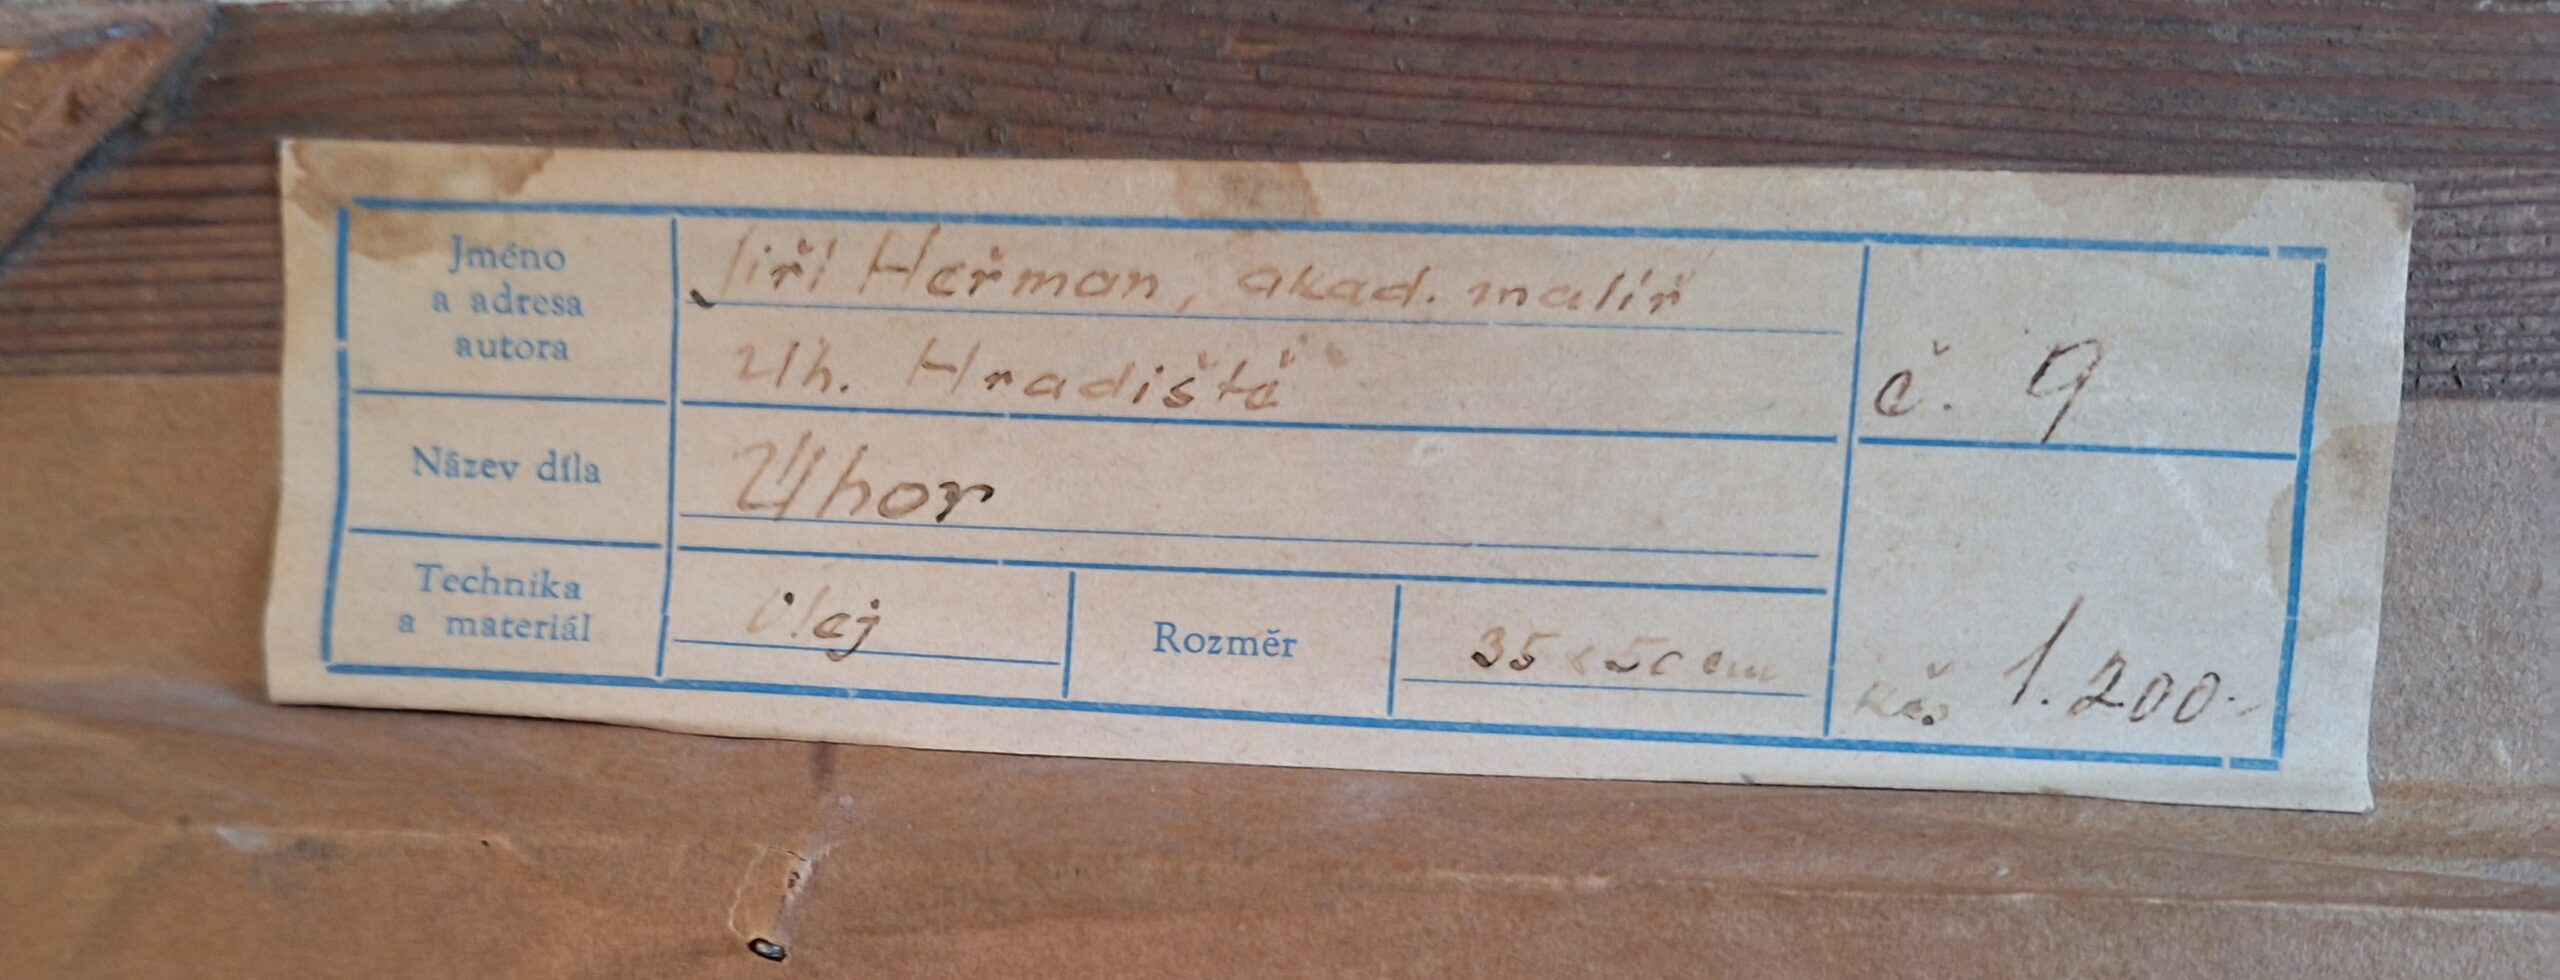 Jméno
a adresa
autora
Jiří Heřman, akad. malíř
Uh. Hradiště
č. 9
Název díla
Úhor
Technika
a materiál
Olej
Rozměr
35 x 50 cm
Kčs 1.200.-